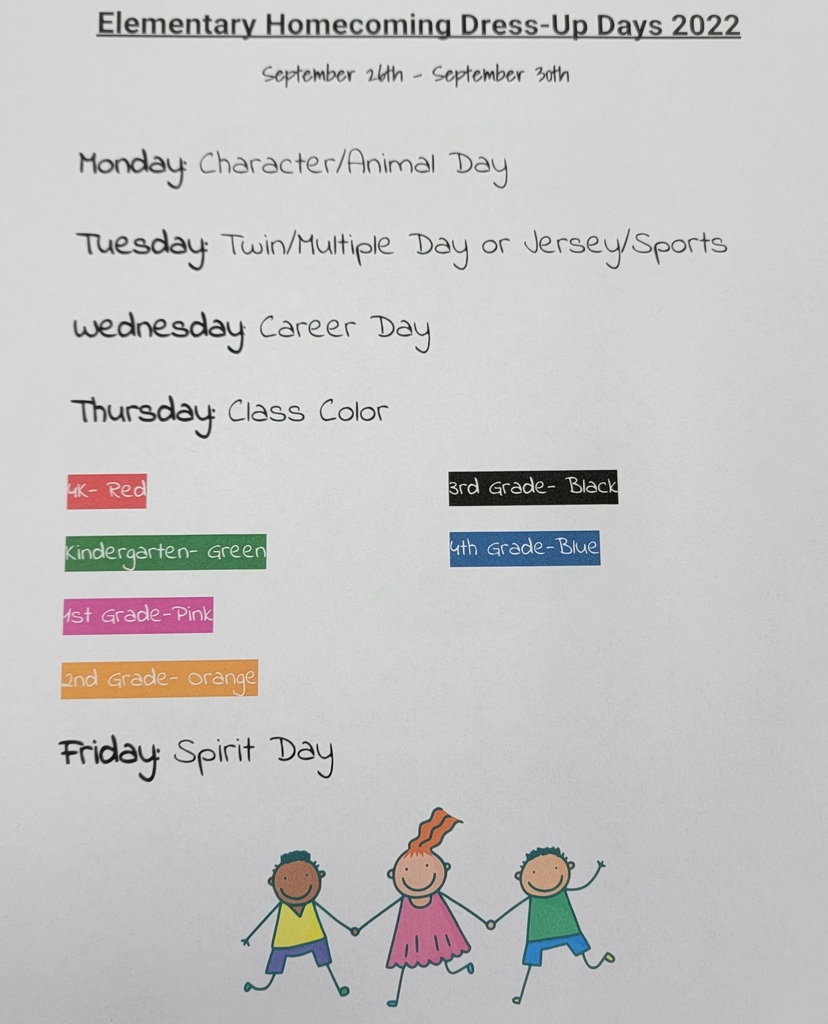 Elementary Homecoming Dress-Up Days 2022
September 26th - September 30th
Monday: Character/Animal Day
Tuesday: Twin/Multiple Day or Jersey/Sports
Wednesday: Career Day
Thursday: Class Color
4K- Red
3rd Grade- Black
Kindergarten- Green
4th Grade-Blue
1st Grade-Pink
2nd Grade- Orange
Friday: Spirit Day